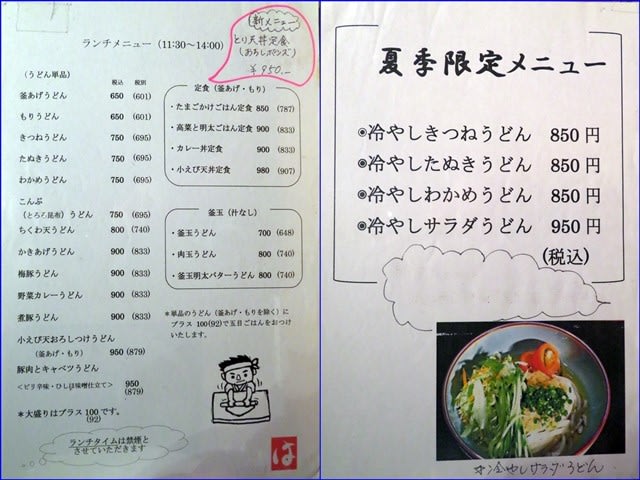 ランチメニュー (11:30～14:00)
新メニュー
とり天丼定食
(おろしポンズ)
￥950.-
(うどん単品)
税込 税別
釜あげうどん 650 (601)
もりうどん 650 (601)
きつねうどん 750 (695)
たぬきうどん 750 (695)
わかめうどん 750 (695)
こんぶ
(とろろ昆布) うどん 750 (695)
ちくわ天うどん 800 (740)
かきあげうどん 900 (833)
梅豚うどん 900 (833)
野菜カレーうどん 900 (833)
煮豚うどん 900 (833)
小えび天おろしつけうどん
(釜あげ・もり) 950 (879)
豚肉とキャベツうどん
<ピリ辛味・ひしほ味噌仕立て> 950
(879)
＊大盛りはプラス 100 です。
(92)
ランチタイムは禁煙と
させていただきます
定食 (釜あげ・もり)
・たまごかけごはん定食 850 (787)
・高菜と明太ごはん定食 900 (833)
・カレー丼定食 900 (833)
・小えび天丼定食 980 (907)
釜玉 (汁なし)
・釜玉うどん 700 (648)
・肉玉うどん 800 (740)
・釜玉明太バターうどん 800 (740)
＊単品のうどん (釜あげ・もりを除く) に
プラス 100(92)で五目ごはんをおつけ
いたします。
は
夏季限定メニュー
◉冷やしきつねうどん 850 円
◉冷やしたぬきうどん 850 円
◉冷やしわかめうどん 850 円
◉冷やしサラダうどん 950 円
(税込)
冷やしサラダうどん